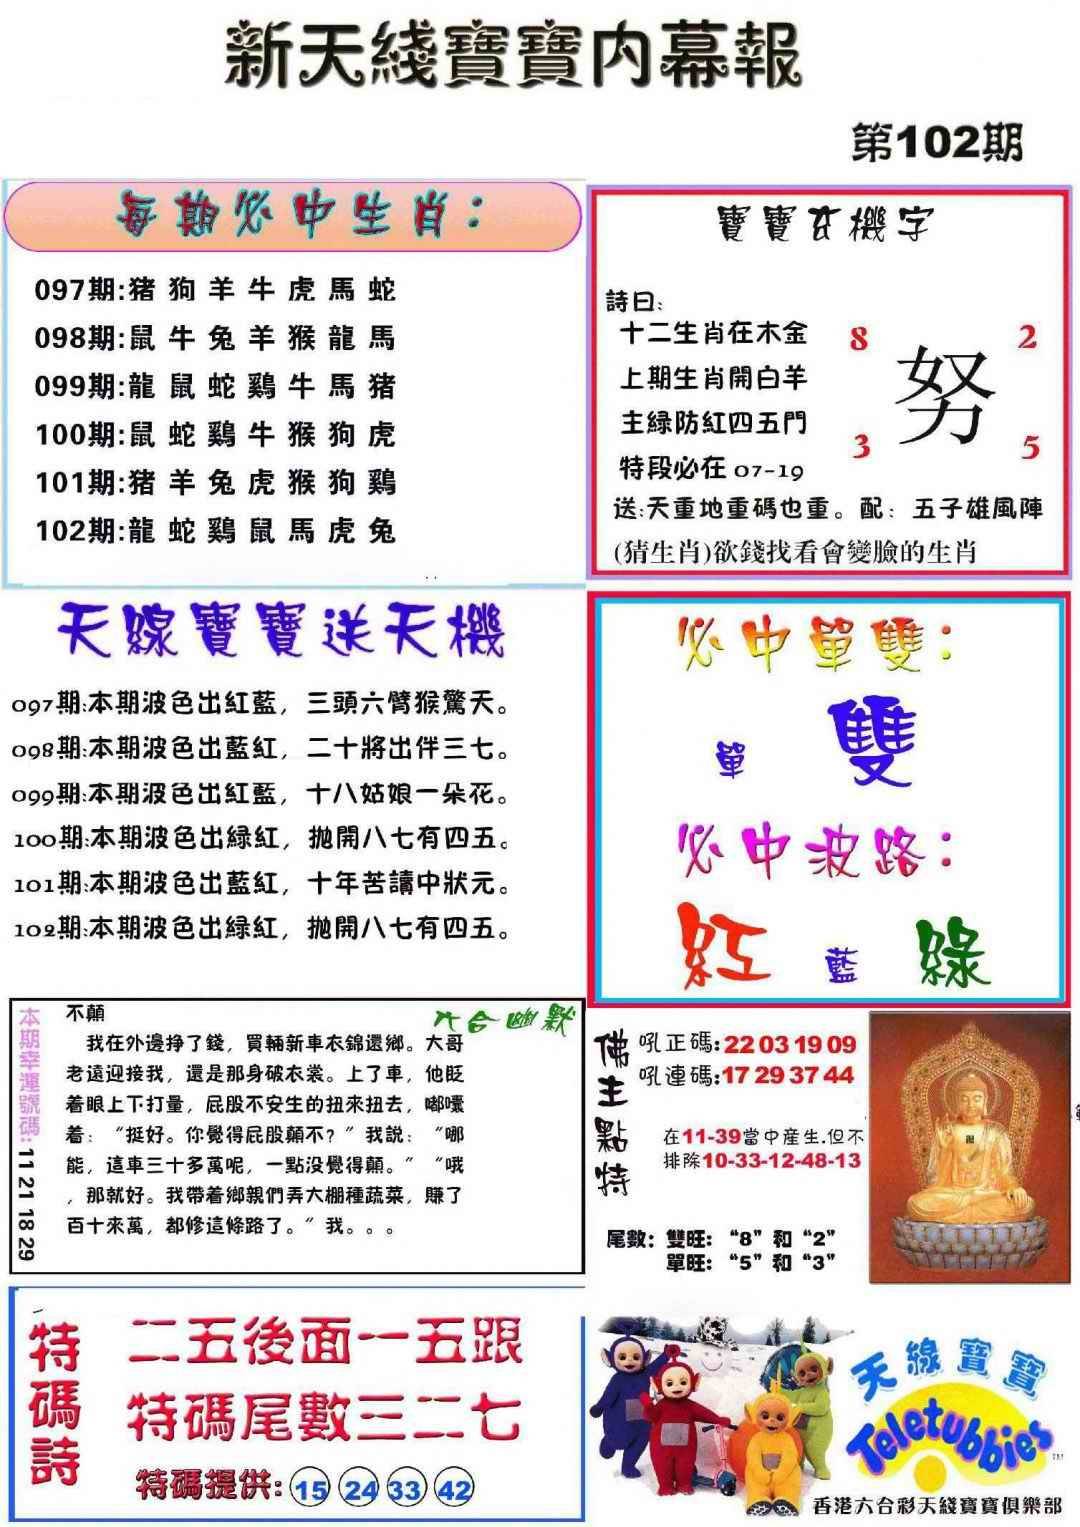 新天綫寶寶内幕報
第102期
每期必中生肖：
097期:猪狗羊牛虎馬蛇
098期:鼠牛兔羊猴龍馬
099期:龍鼠蛇鷄牛馬猪
100期:鼠蛇鷄牛猴狗虎
101期:猪羊兔虎猴狗鷄
102期:龍蛇鷄鼠馬虎兔
寶寶玄機字
詩曰:
十二生肖在木金
上期生肖開白羊
主緑防紅四五門
特段必在 07-19
8 2
努
3 5
送:天重地重碼也重。配：五子雄風陣
(猜生肖)欲錢找看會變臉的生肖
天線寶寶送天機
097期:本期波色出紅藍，三頭六臂猴驚天。
098期:本期波色出藍紅，二十將出伴三七。
099期:本期波色出紅藍，十八姑娘一朵花。
100期:本期波色出緑紅，抛開八七有四五。
101期:本期波色出藍紅，十年苦讀中狀元。
102期:本期波色出緑紅，抛開八七有四五。
必中單雙：
單 雙
必中波路：
紅 藍 綠
本期幸運號碼: 11 21 18 29
六合幽默
不顛
我在外邊挣了錢，買輛新車衣錦還鄉。大哥
老遠迎接我，還是那身破衣裳。上了車，他眨
着眼上下打量，屁股不安生的扭來扭去，嘟囔
着：“挺好。你覺得屁股顛不？”我説：“哪
能，這車三十多萬呢，一點没覺得顛。”“哦
，那就好。我帶着鄉親們弄大棚種蔬菜，賺了
百十來萬，都修這條路了。”我。。。
佛主點特
吼正碼:22 03 19 09
吼連碼:17 29 37 44
在11-39當中産生.但不
排除10-33-12-48-13
尾數：雙旺：“8”和“2”
單旺：“5”和“3”
特碼詩
二五後面一五跟
特碼尾數三二七
特碼提供: 15 24 33 42
天線寶寶
Teletubbies
TM
香港六合彩天綫寶寶俱樂部